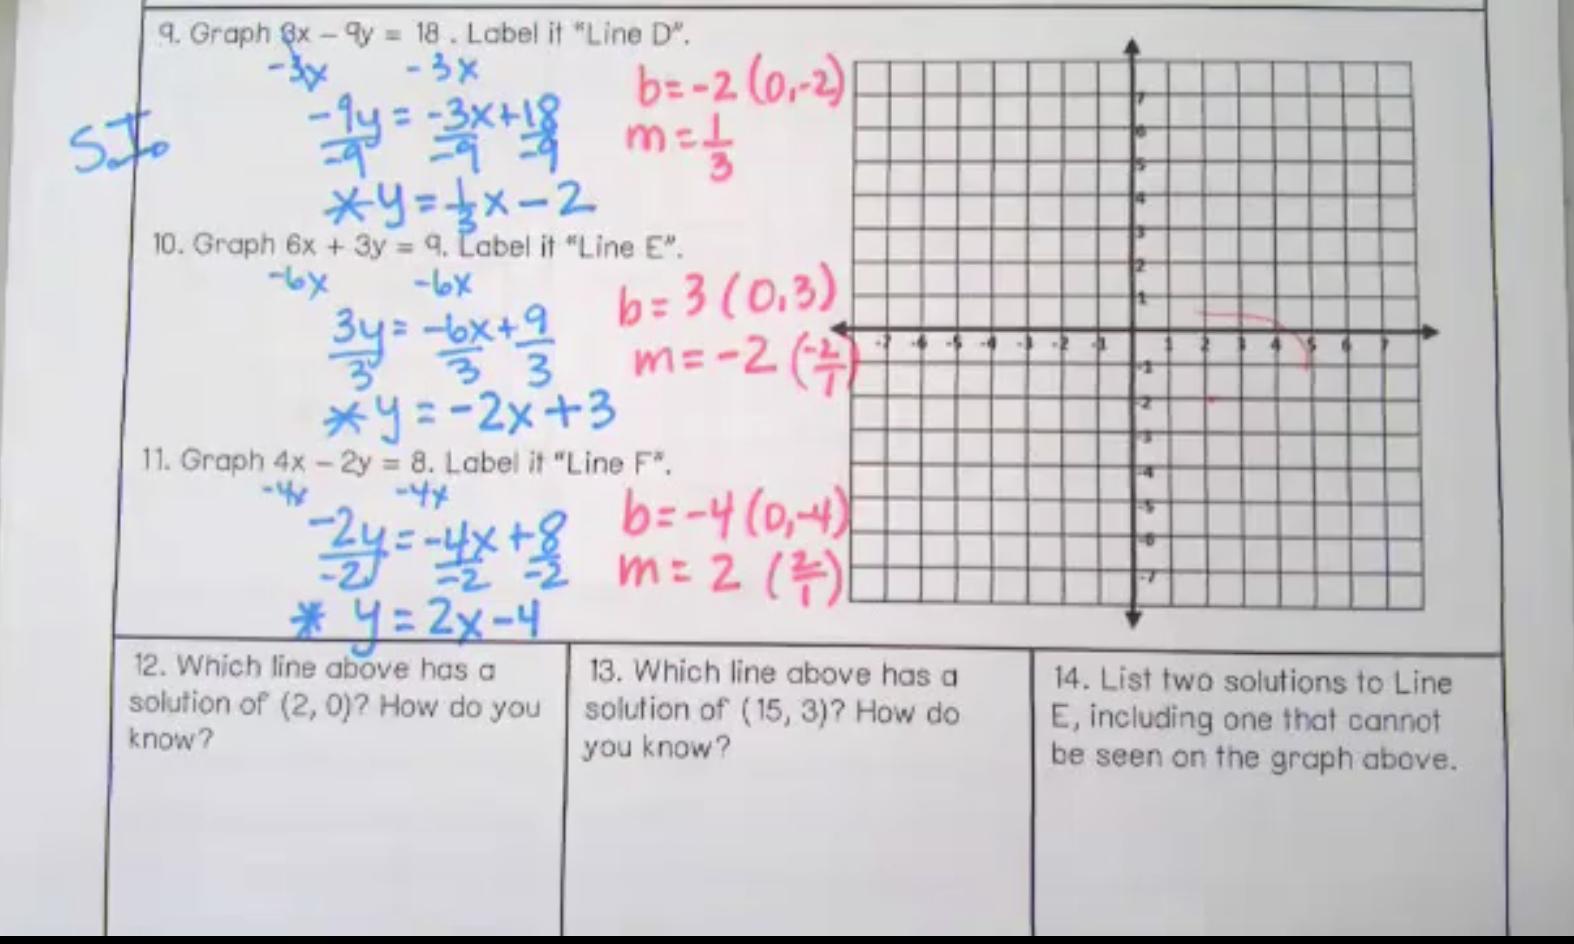 9. Graph 3x – 9y = 18. Label it "Line D".
-3x -3x
-9y = -3x + 18
-9 -9 -9
* y = 1/3 x - 2
b = -2 (0,-2)
m = 1/3
S.I.
10. Graph 6x + 3y = 9. Label it "Line E".
-6x -6x
3y = -6x + 9
3 3 3
* y = -2x + 3
b = 3 (0,3)
m = -2 (-2/1)
11. Graph 4x – 2y = 8. Label it "Line F".
-4x -4x
-2y = -4x + 8
-2 -2 -2
* y = 2x - 4
b = -4 (0,-4)
m = 2 (2/1)
7
6
5
4
3
2
1
-7 -6 -5 -4 -3 -2 -1 1 2 3 4 5 6 7
-1
-2
-3
-4
-5
-6
-7
12. Which line above has a
solution of (2, 0)? How do you
know?
13. Which line above has a
solution of (15, 3)? How do
you know?
14. List two solutions to Line
E, including one that cannot
be seen on the graph above.